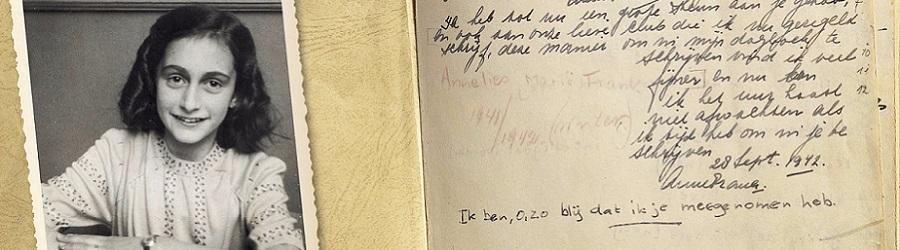 Ik heb tot nu een grote steun aan je gehad,
en ook aan onze lieve club die ik nu geregeld
schrijf, deze manier om in mijn dagboek te
schrijven vind ik veel
fijner en nu kan
ik het uur haast
niet afwachten als
ik tijd heb om in je te
schrijven.
28 Sept. 1942.
Anne Frank.
Ik ben, O, zo blij dat ik je meegenomen heb.
Annelies Marie Frank
1941/
1942 (winter)
10
11
12